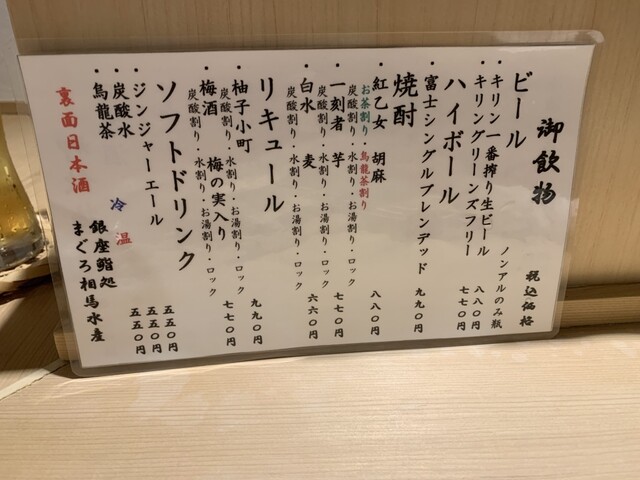 御飲物
税込価格
ビール
ノンアルのみ瓶
・キリン一番搾り生ビール 八八〇円
・キリングリーンズフリー 七七〇円
ハイボール
・富士シングルブレンデッド 九九〇円
焼酎
・紅乙女 胡麻 八八〇円
お茶割り・烏龍茶割り
炭酸割り・水割り・お湯割り・ロック
・一刻者 芋 七七〇円
炭酸割り・水割り・お湯割り・ロック
・白水 麦 六六〇円
炭酸割り・水割り・お湯割り・ロック
リキュール
・柚子小町 九九〇円
炭酸割り・水割り・お湯割り・ロック
・梅酒 梅の実入り 七七〇円
炭酸割り・水割り・お湯割り・ロック
ソフトドリンク
・ジンジャーエール 五五〇円
・炭酸水 五五〇円
・烏龍茶 冷 温 五五〇円
裏面日本酒
銀座鮨処
まぐろ相馬水産